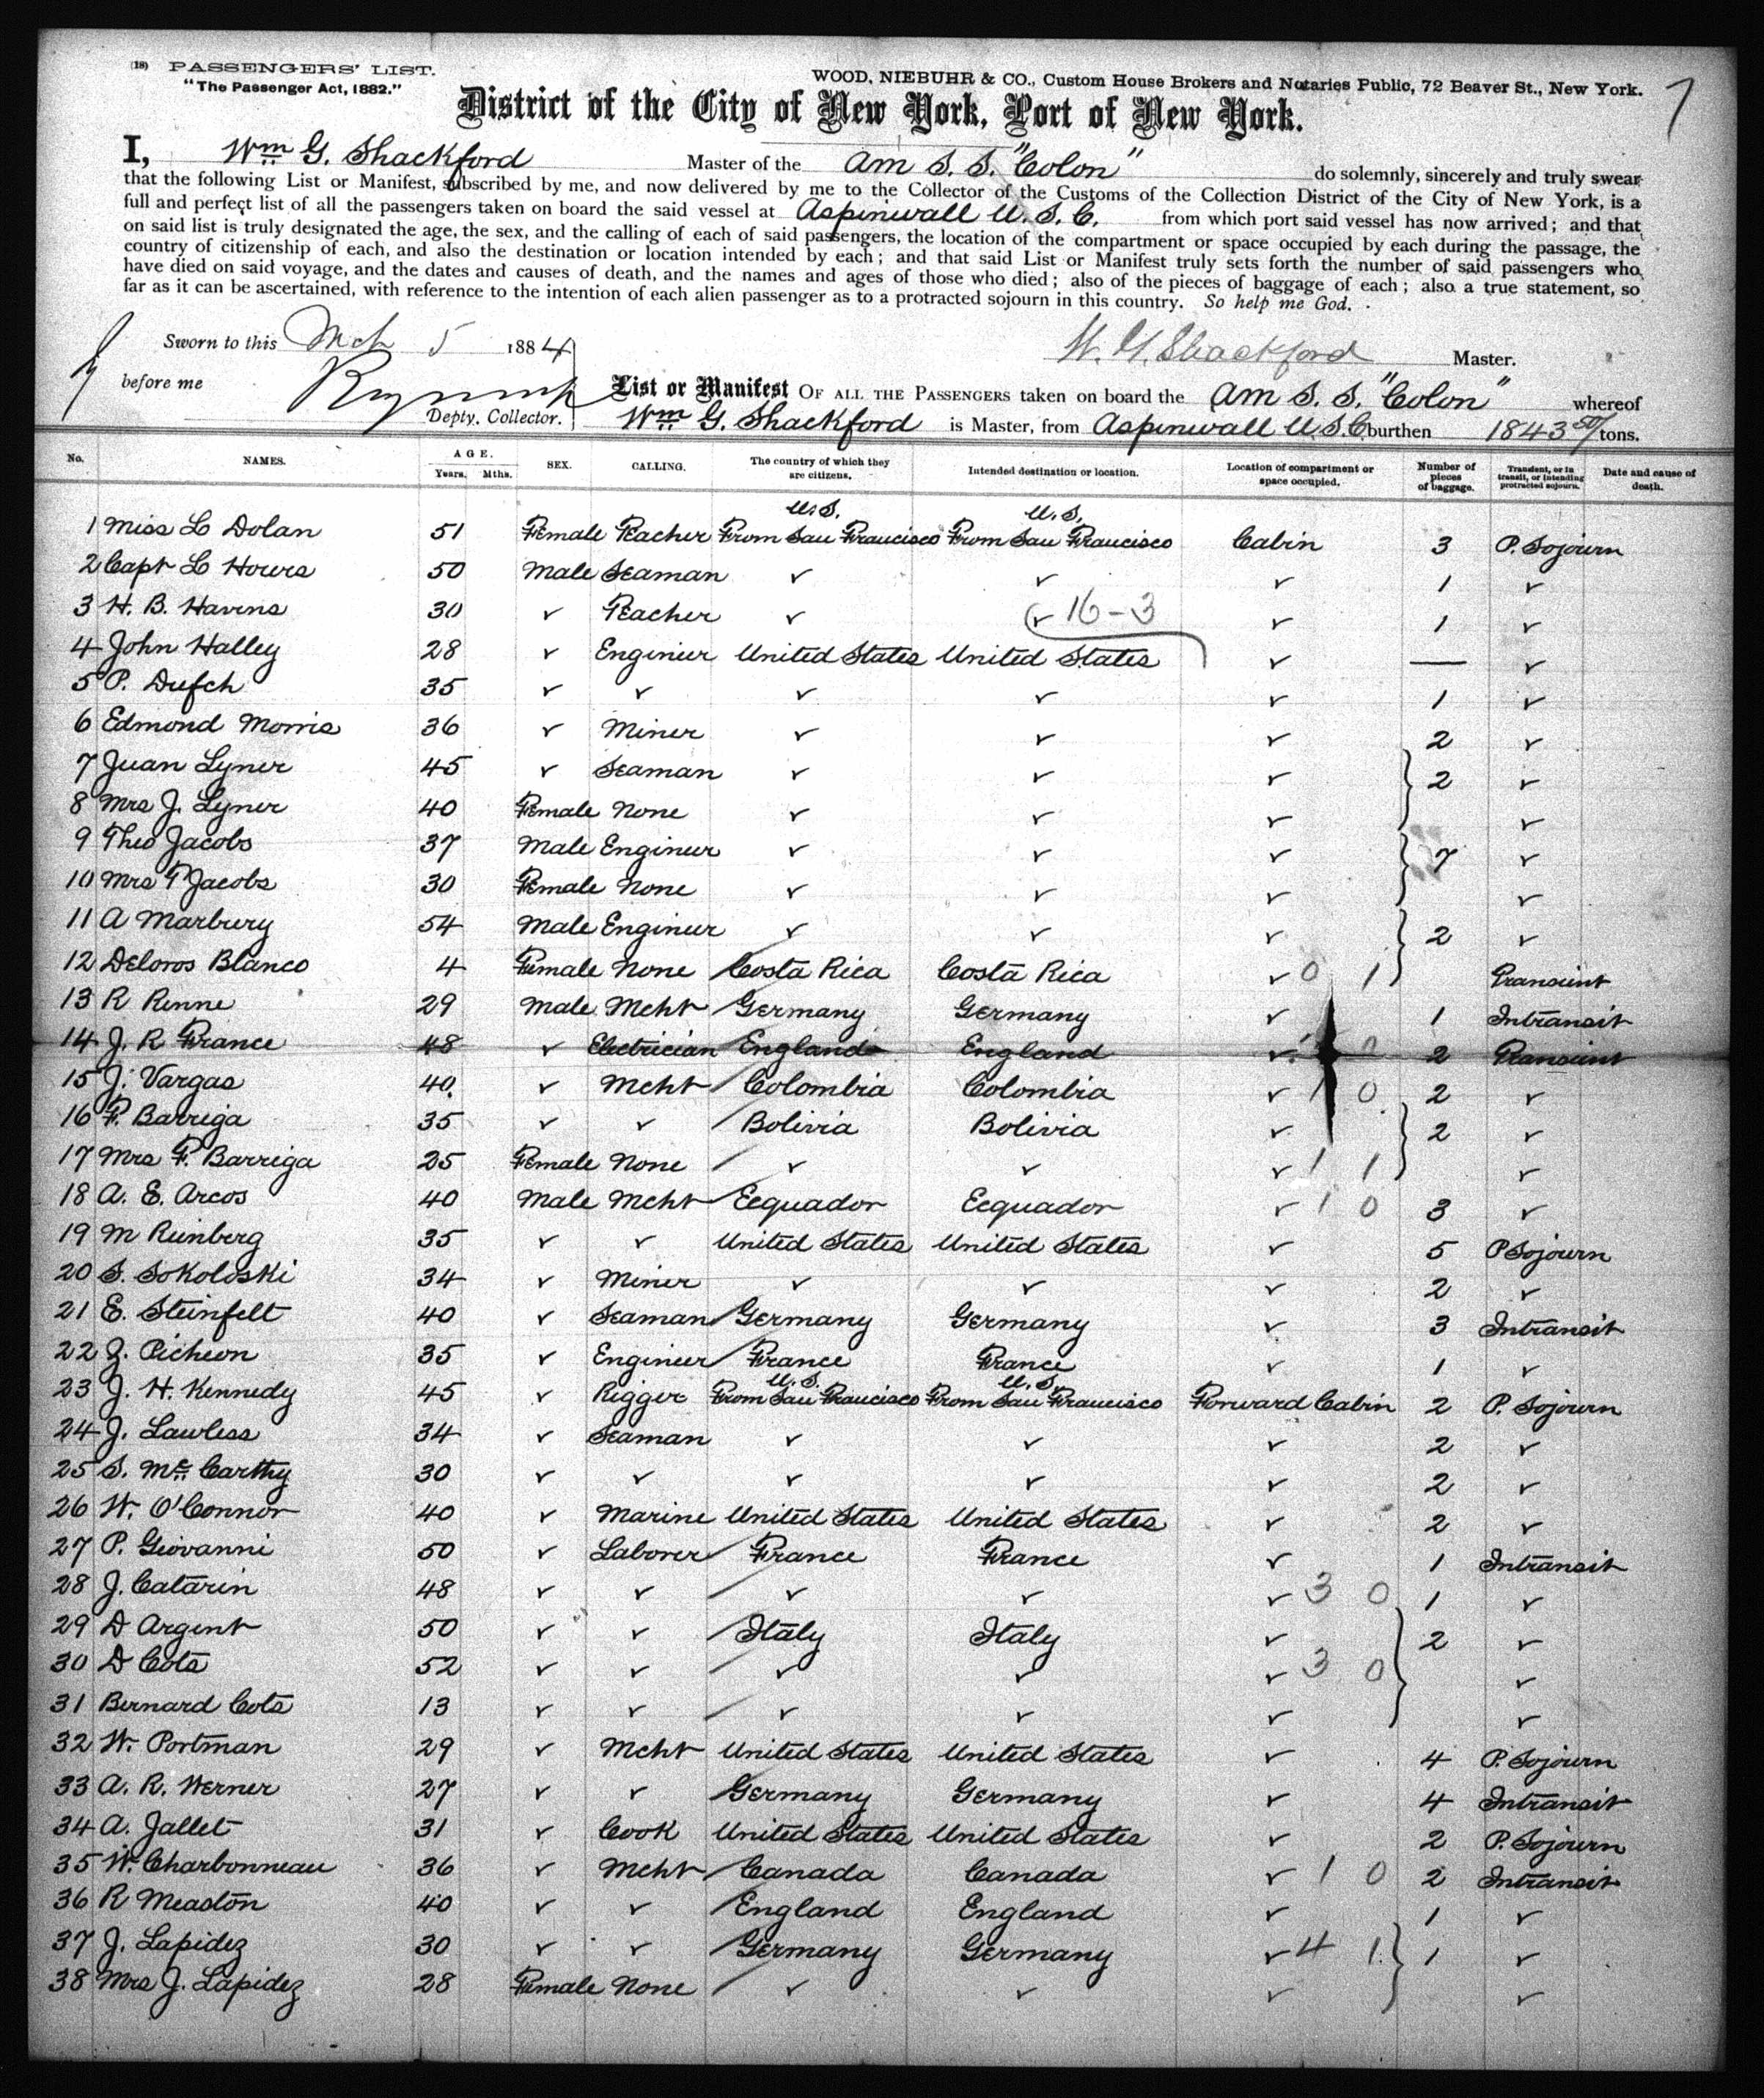 (18) PASSENGERS' LIST.
"The Passenger Act, 1882."
WOOD, NIEBUHR & CO., Custom House Brokers and Notaries Public, 72 Beaver St., New York.
7
District of the City of New York, Port of New York.
I, Wm G. Shackford Master of the Am S. S. "Colon" do solemnly, sincerely and truly swear
that the following List or Manifest, subscribed by me, and now delivered by me to the Collector of the Customs of the Collection District of the City of New York, is a
full and perfect list of all the passengers taken on board the said vessel at Aspinwall U. S. C. from which port said vessel has now arrived; and that
on said list is truly designated the age, the sex, and the calling of each of said passengers, the location of the compartment or space occupied by each during the passage, the
country of citizenship of each, and also the destination or location intended by each; and that said List or Manifest truly sets forth the number of said passengers who
have died on said voyage, and the dates and causes of death, and the names and ages of those who died; also of the pieces of baggage of each; also a true statement, so
far as it can be ascertained, with reference to the intention of each alien passenger as to a protracted sojourn in this country. So help me God.
Sworn to this Mch 5 1884
W. G. Shackford Master.
before me
Depty. Collector.
List or Manifest OF ALL THE PASSENGERS taken on board the Am S. S. "Colon" whereof
Wm G. Shackford is Master, from Aspinwall U S C burthen 1843 50/ tons.
No. NAMES. AGE. Years. Mths. SEX. CALLING. The country of which they are citizens. Intended destination or location. Location of compartment or space occupied. Number of pieces of baggage. Transient, or in transit, or intending protracted sojourn. Date and cause of death.
U.S. U.S.
1 Miss L Dolan 51 Female Teacher From San Francisco From San Francisco Cabin 3 P. Sojourn
2 Capt L Howes 50 Male Seaman ✓ ✓ ✓ 1 ✓
3 H. B. Havens 30 ✓ Teacher ✓ ✓ 16-3 ✓ 1 ✓
4 John Halley 28 ✓ Engineer United States United States ✓ — ✓
5 P. Dufch 35 ✓ ✓ ✓ ✓ ✓ 1 ✓
6 Edmond Morris 36 ✓ Miner ✓ ✓ ✓ 2 ✓
7 Juan Lyner 45 ✓ Seaman ✓ ✓ ✓ 2 ✓
8 Mrs J. Lyner 40 Female None ✓ ✓ ✓ ✓
9 Theo Jacobs 37 Male Engineer ✓ ✓ ✓ 7 ✓
10 Mrs T Jacobs 30 Female None ✓ ✓ ✓ ✓
11 A Marbury 54 Male Engineer ✓ ✓ ✓ 2 ✓
12 Deloros Blanco 4 Female None Costa Rica Costa Rica ✓ 0 1 Transient
13 R Renne 29 Male Mcht Germany Germany ✓ 1 Intransit
14 J. R France 48 ✓ Electrician England England ✓ 0 2 Transient
15 J. Vargas 40 ✓ Mcht Colombia Colombia ✓ 1 0 2 ✓
16 F. Barriga 35 ✓ ✓ Bolivia Bolivia ✓ 2 ✓
17 Mrs F. Barriga 25 Female None ✓ ✓ ✓ 1 1 ✓
18 A. E. Arcos 40 Male Mcht Ecquador Ecquador ✓ 1 0 3 ✓
19 M Reinberg 35 ✓ ✓ United States United States ✓ 5 P Sojourn
20 S. Sokoloski 34 ✓ Miner ✓ ✓ ✓ 2 ✓
21 E. Steinfelt 40 ✓ Seaman Germany Germany ✓ 3 Intransit
22 J. Picheon 35 ✓ Engineer France France ✓ 1 ✓
U. S. U. S.
23 J. H. Kennedy 45 ✓ Rigger From San Francisco From San Francisco Forward Cabin 2 P. Sojourn
24 J. Lawless 34 ✓ Seaman ✓ ✓ ✓ 2 ✓
25 S. McCarthy 30 ✓ ✓ ✓ ✓ ✓ 2 ✓
26 W. O'Connor 40 ✓ Marine United States United States ✓ 2 ✓
27 P. Giovanni 50 ✓ Laborer France France ✓ 1 Intransit
28 J. Catarin 48 ✓ ✓ ✓ ✓ ✓ 3 0 1 ✓
29 D Argent 50 ✓ ✓ Italy Italy ✓ 2 ✓
30 D Cota 52 ✓ ✓ ✓ ✓ ✓ 3 0 ✓
31 Bernard Cota 13 ✓ ✓ ✓ ✓ ✓ ✓
32 W. Portman 29 ✓ Mcht United States United States ✓ 4 P. Sojourn
33 A. R. Werner 27 ✓ ✓ Germany Germany ✓ 4 Intransit
34 A. Jallet 31 ✓ Cook United States United States ✓ 2 P. Sojourn
35 W. Charbonneau 36 ✓ Mcht Canada Canada ✓ 1 0 2 Intransit
36 R Measton 40 ✓ ✓ England England ✓ 1 ✓
37 J. Lapidez 30 ✓ ✓ Germany Germany ✓ 4 1 1 ✓
38 Mrs J. Lapidez 28 Female None ✓ ✓ ✓ ✓